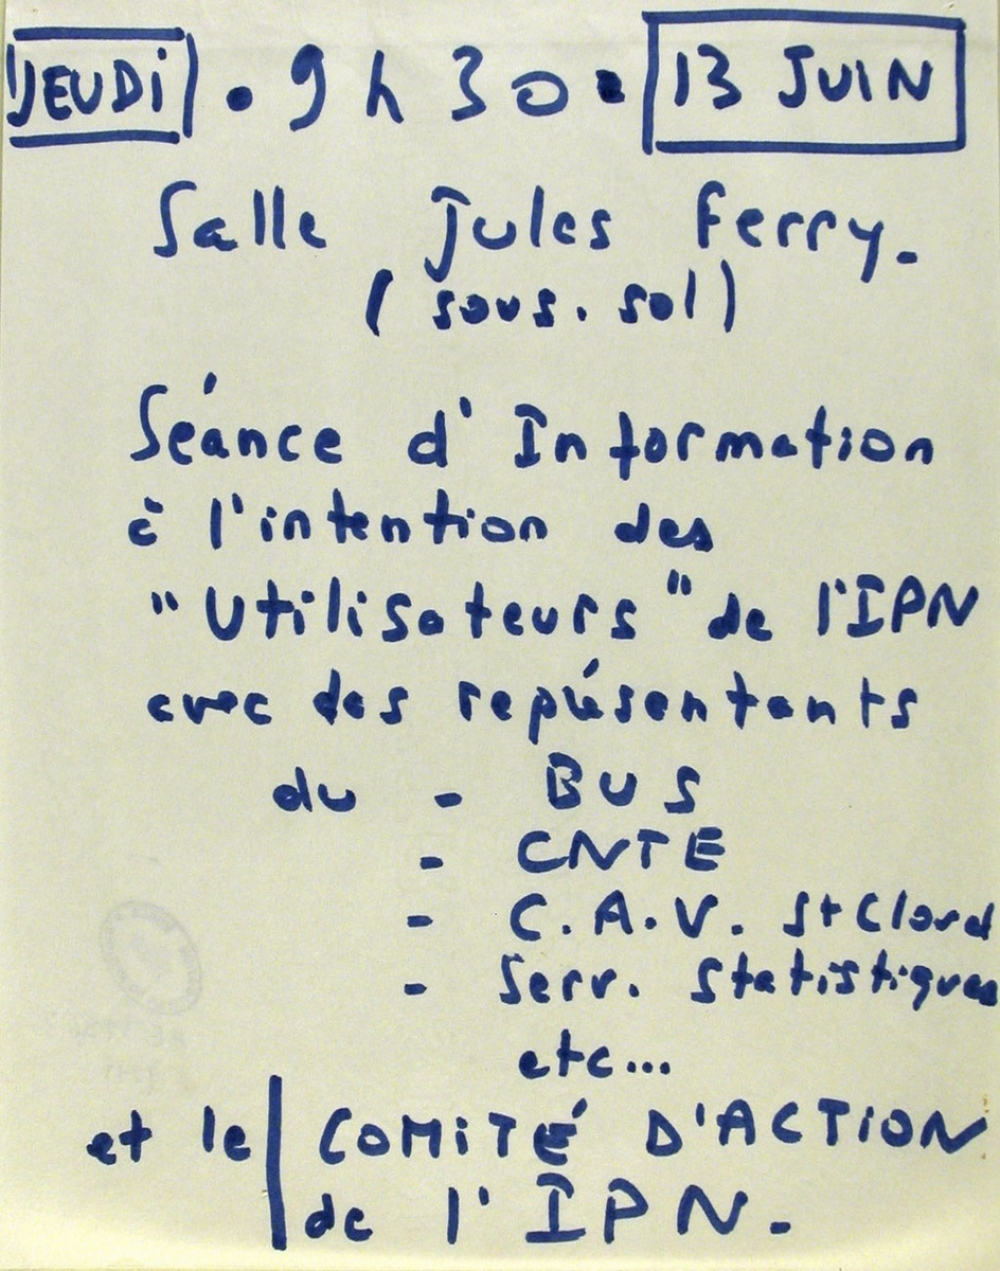 JEUDi . 9h30 . 13 JUIN
Salle Jules Ferry.
(sous.sol)
Séance d'Information
à l'intention des
"Utilisateurs" de l'IPN
avec des représentants
du - BUS
- CNTE
- C.A.V. St Cloud
- Serv. Statistiques
etc...
et le COMiTÉ D'ACTiON
de l'IPN.